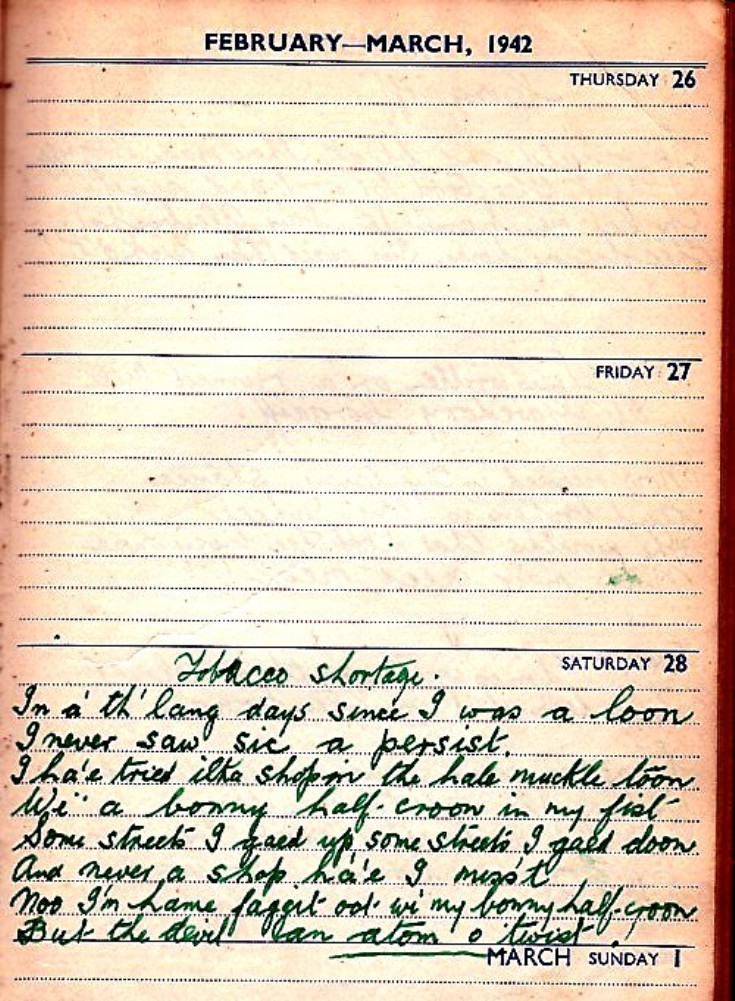 FEBRUARY—MARCH, 1942
THURSDAY 26
FRIDAY 27
SATURDAY 28
Tobacco shortage.
In a' th' lang days since I was a loon
I never saw sic a persist.
I ha'e tried ilka shop in the hale muckle toon
Wi' a bonny half-croon in my fist
Some streets I gaed up some streets I gaed doon
And never a shop ha'e I miss't
Noo I'm hame faggit oot wi' my bonny half-croon
But the devil an atom o twist!
MARCH SUNDAY 1